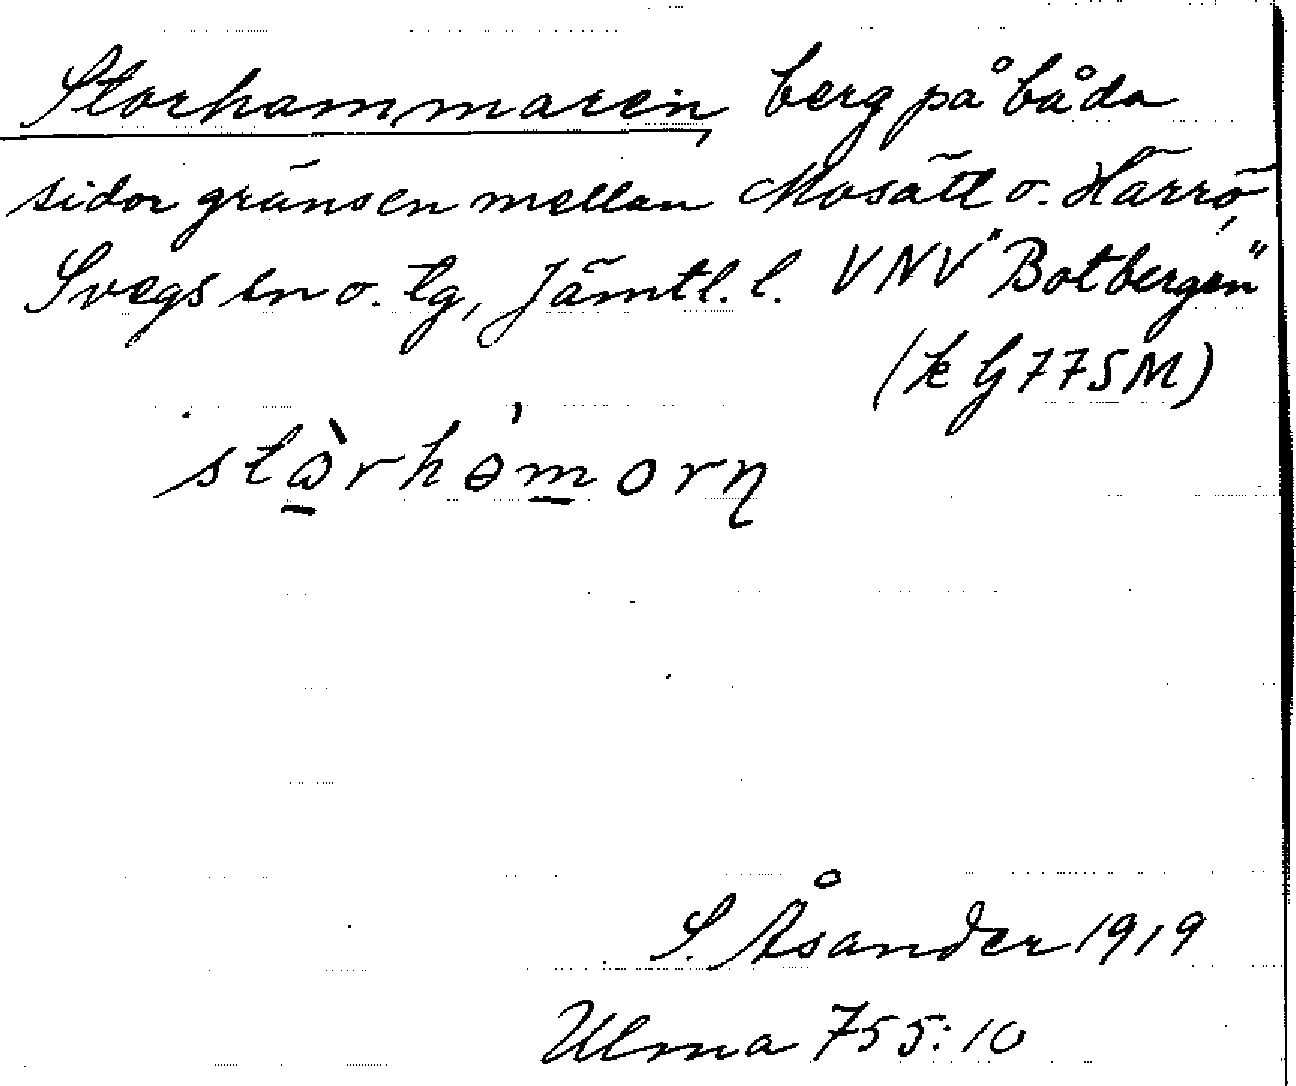 Storhammaren, berg på båda
sidor gränsen mellan Mosätt o. Härrö,
Svegs sn o. tg, Jämtl. l. VNV "Botbergen"
(k G 77SM)
stɷ̀rhəmorn̥
S. Åsander 1919
Ulma 755:10